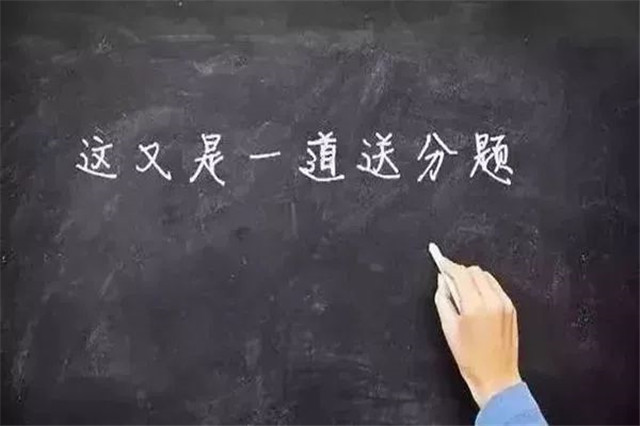 这又是一道送分题